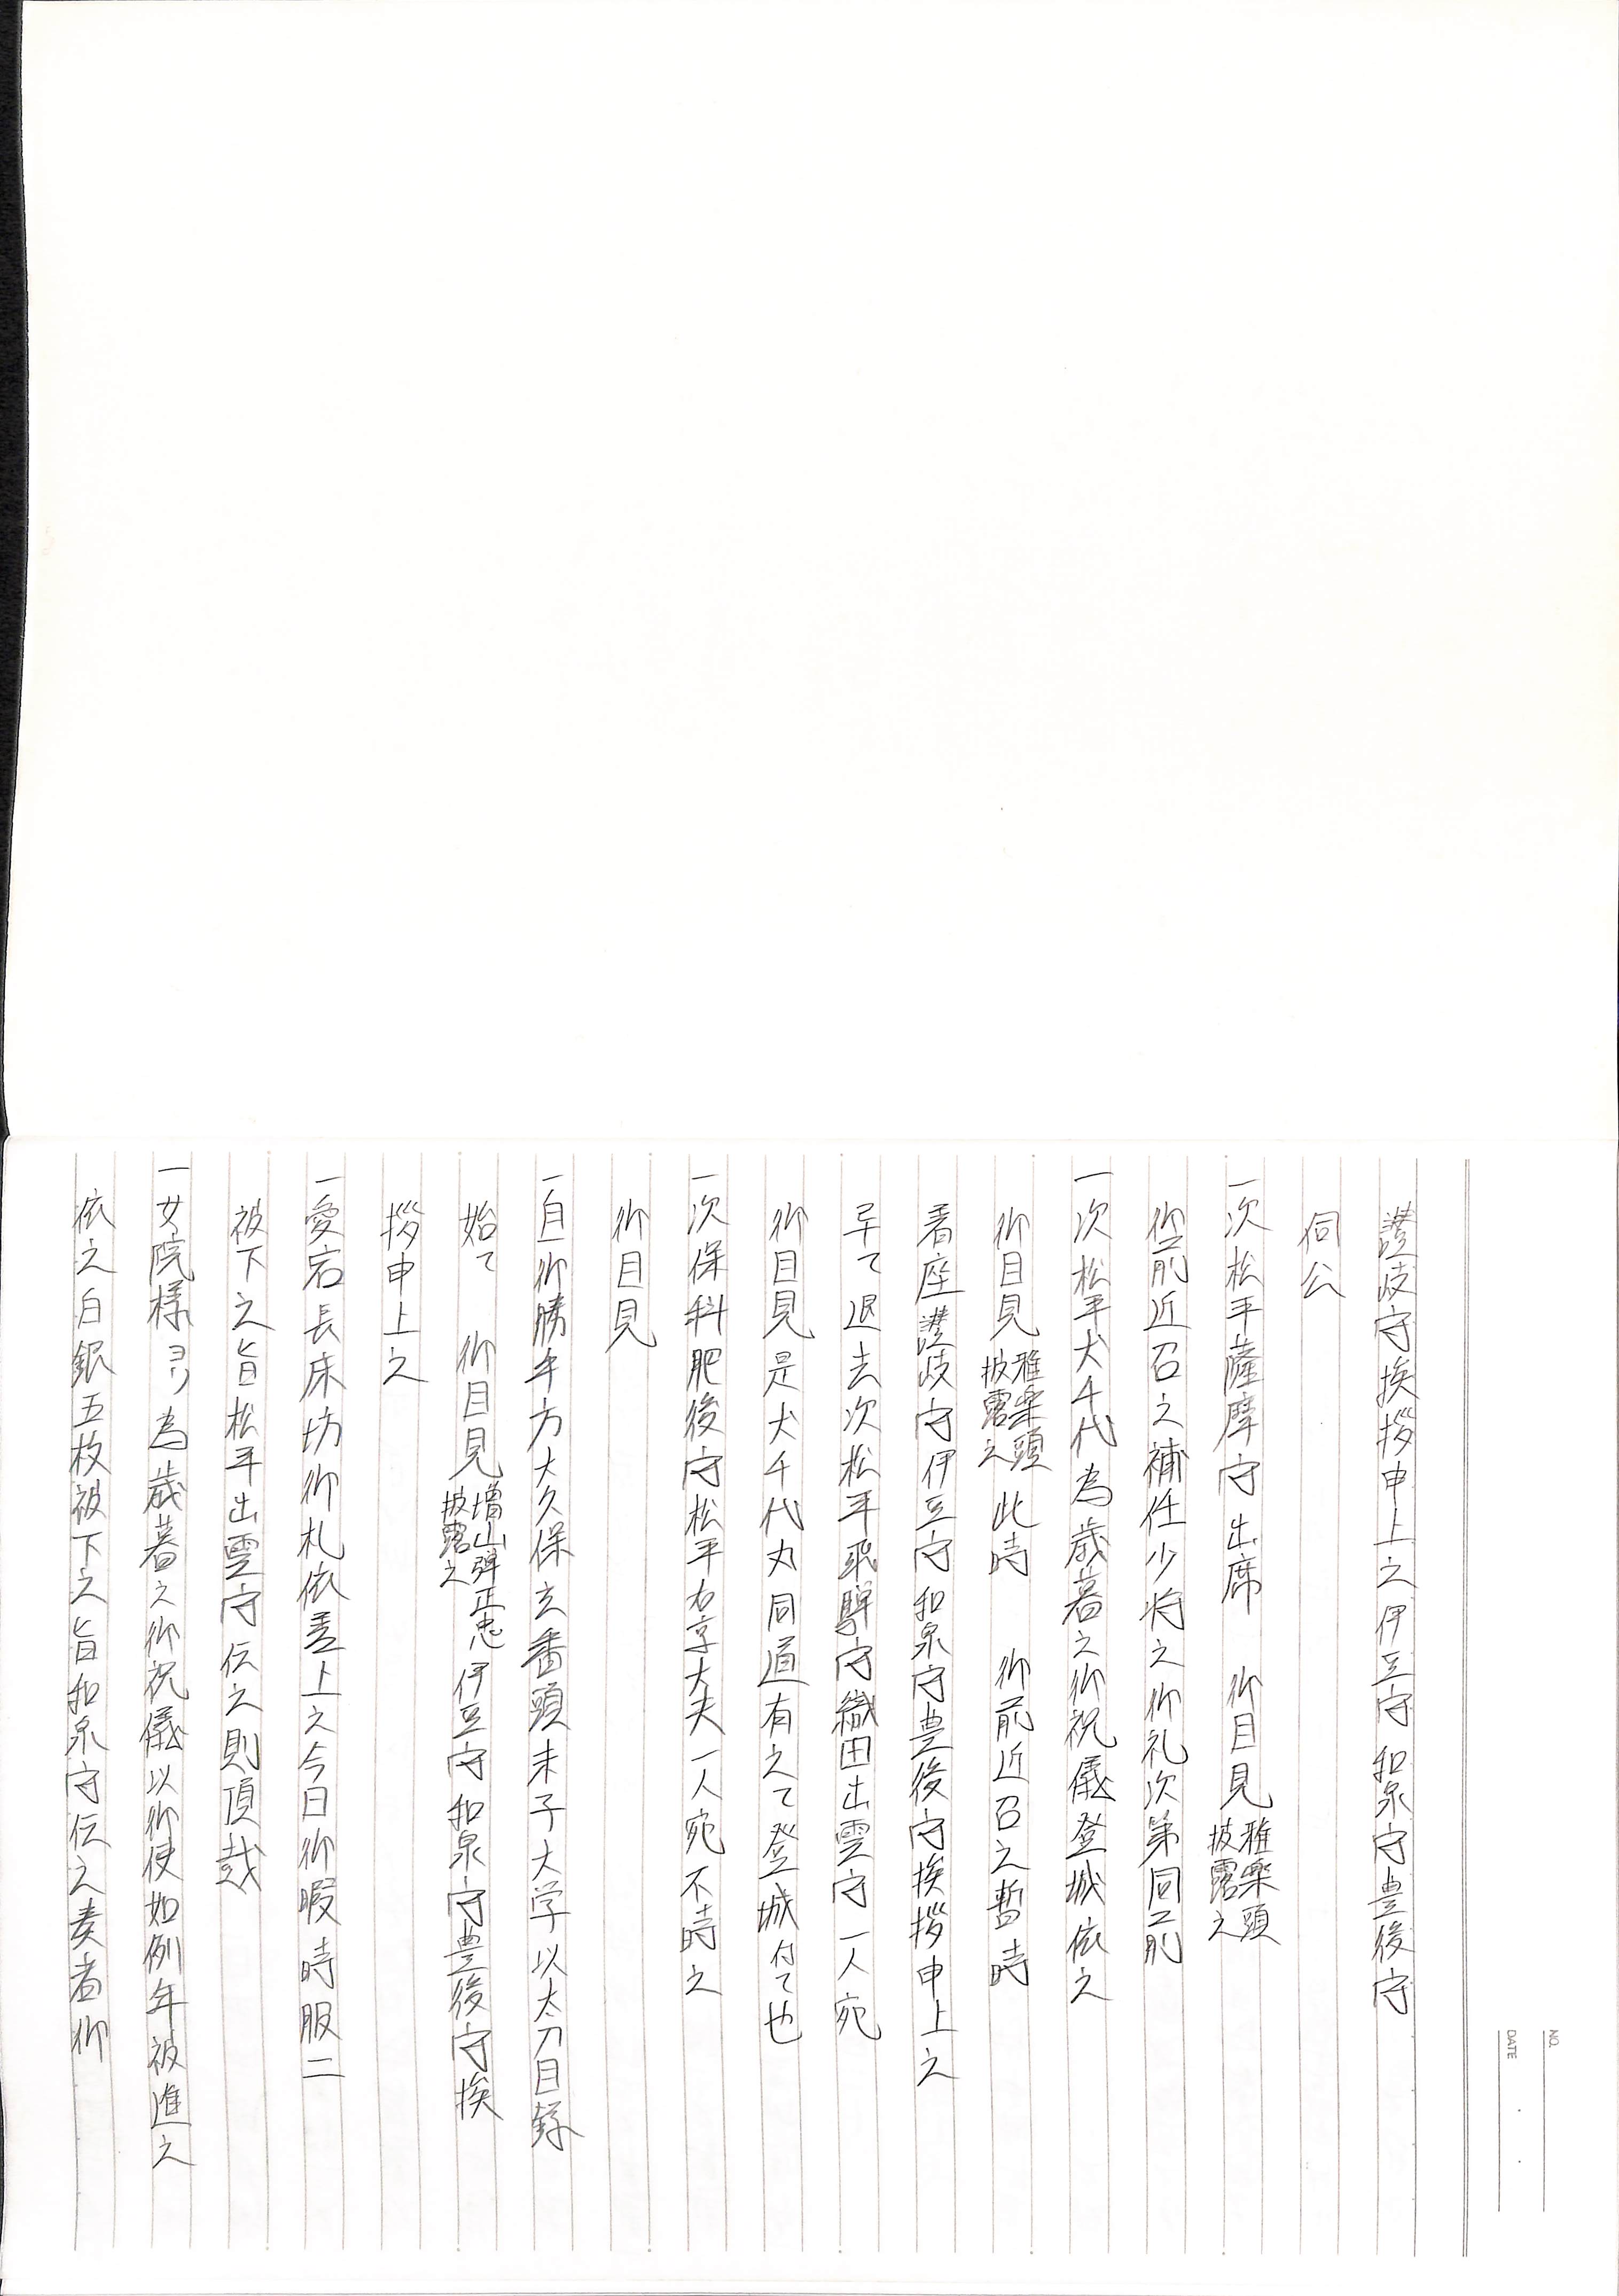 讃岐守挨拶申上之伊豆守和泉守豊後守
伺公
一次松平薩摩守出席 御目見 雅楽頭披露之
御前近召之補任少将之御礼次第同前
一次松平犬千代為歳暮之御祝儀登城依之
御目見 雅楽頭披露之 此時 御前近召之暫時
着座讃岐守伊豆守和泉守豊後守挨拶申上之
畢て退去次松平飛騨守織田出雲守一人宛
御目見是犬千代丸同道有之て登城付て也
一次保科肥後守松平右京大夫一人宛不時之
御目見
一自御勝手方大久保玄番頭末子大学以太刀目録
始て 御目見 増山弾正忠披露之 伊豆守和泉守豊後守挨
拶申上之
一愛宕長床坊御札依差上之今日御暇時服二
被下之旨松平出雲守伝之則頂戴
一女院様ヨリ為歳暮之御祝儀以御使如例年被進之
依之白銀五枚被下之旨和泉守伝之奏者御
NO.
DATE